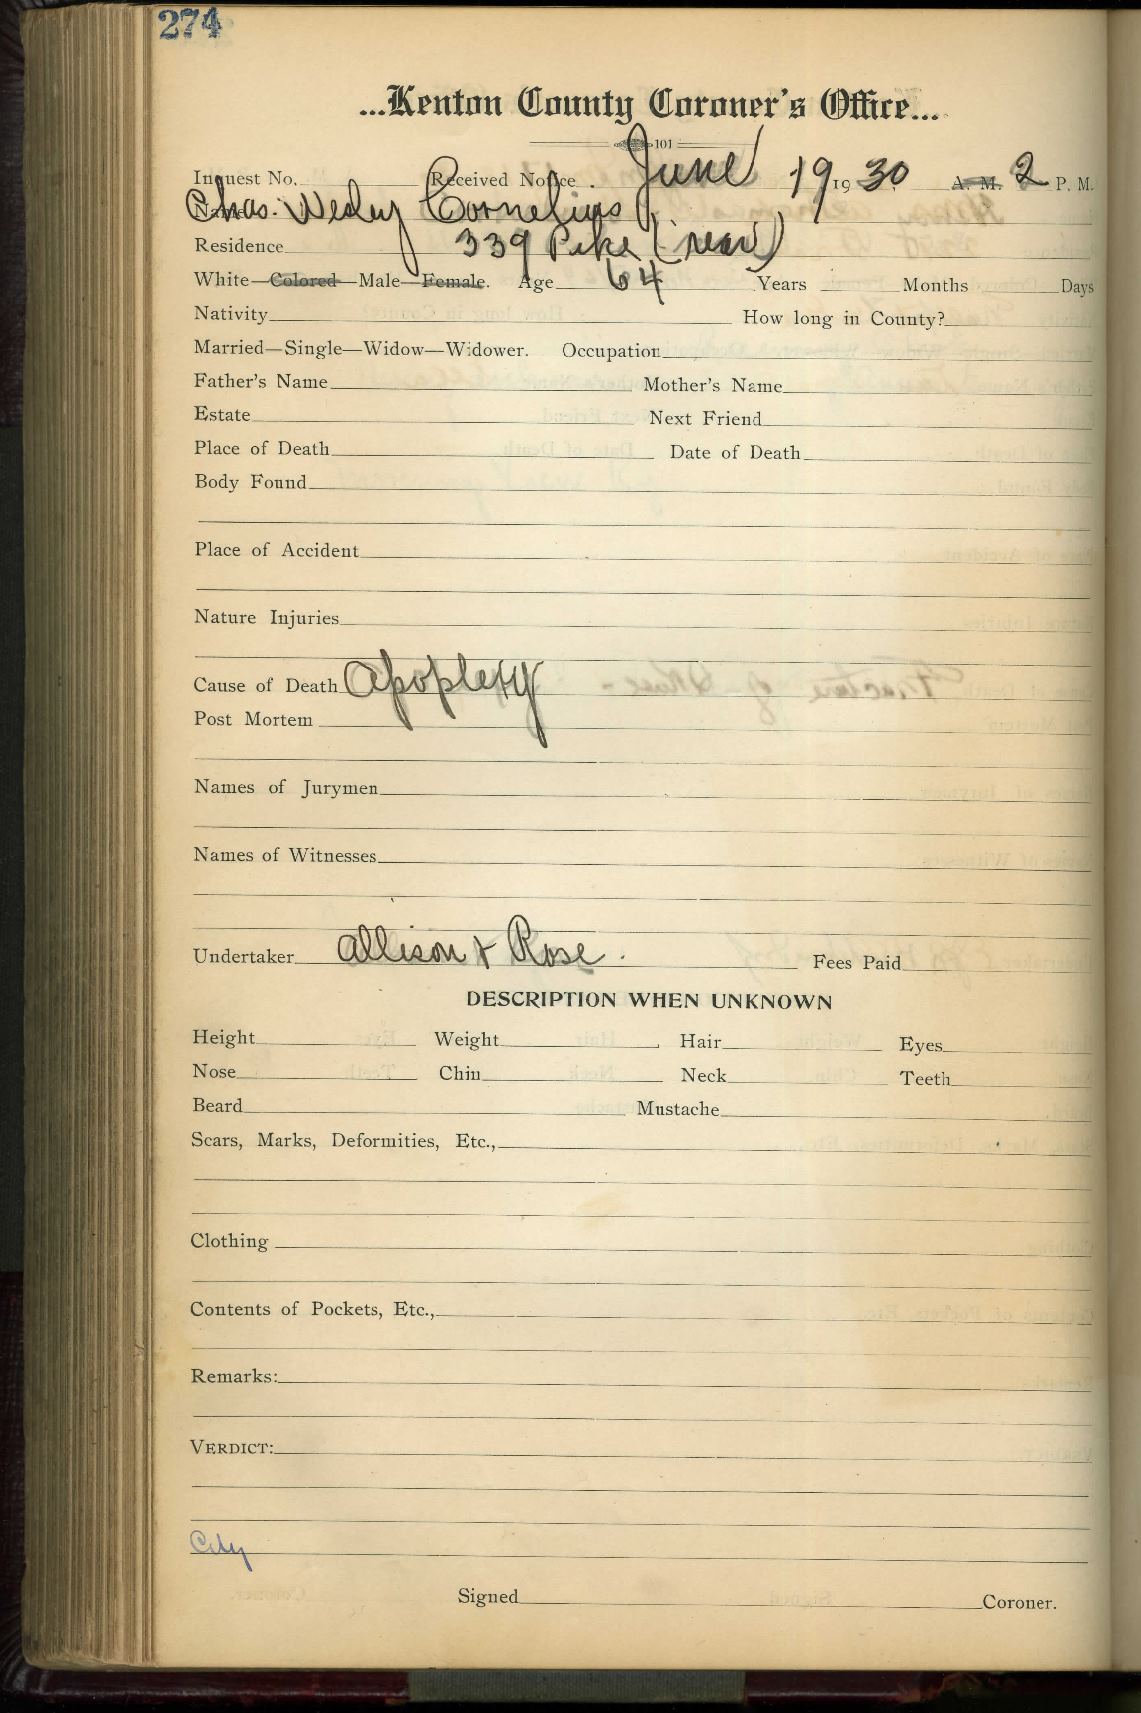 274
...Kenton County Coroner's Office...
101
Inquest No. Received Notice. June 19 1930 A. M. 2 P. M.
Name Chas. Wesley Cornelius
Residence 339 Pike (rear)
White—Colored—Male—Female. Age 64 Years Months Days
Nativity How long in County?
Married—Single—Widow—Widower. Occupation
Father's Name Mother's Name
Estate Next Friend
Place of Death Date of Death
Body Found
Place of Accident
Nature Injuries
Cause of Death Apoplexy
Post Mortem
Names of Jurymen
Names of Witnesses
Undertaker Allison & Rose. Fees Paid
DESCRIPTION WHEN UNKNOWN
Height Weight Hair Eyes
Nose Chin Neck Teeth
Beard Mustache
Scars, Marks, Deformities, Etc.,
Clothing
Contents of Pockets, Etc.,
Remarks:
VERDICT:
City
Signed Coroner.